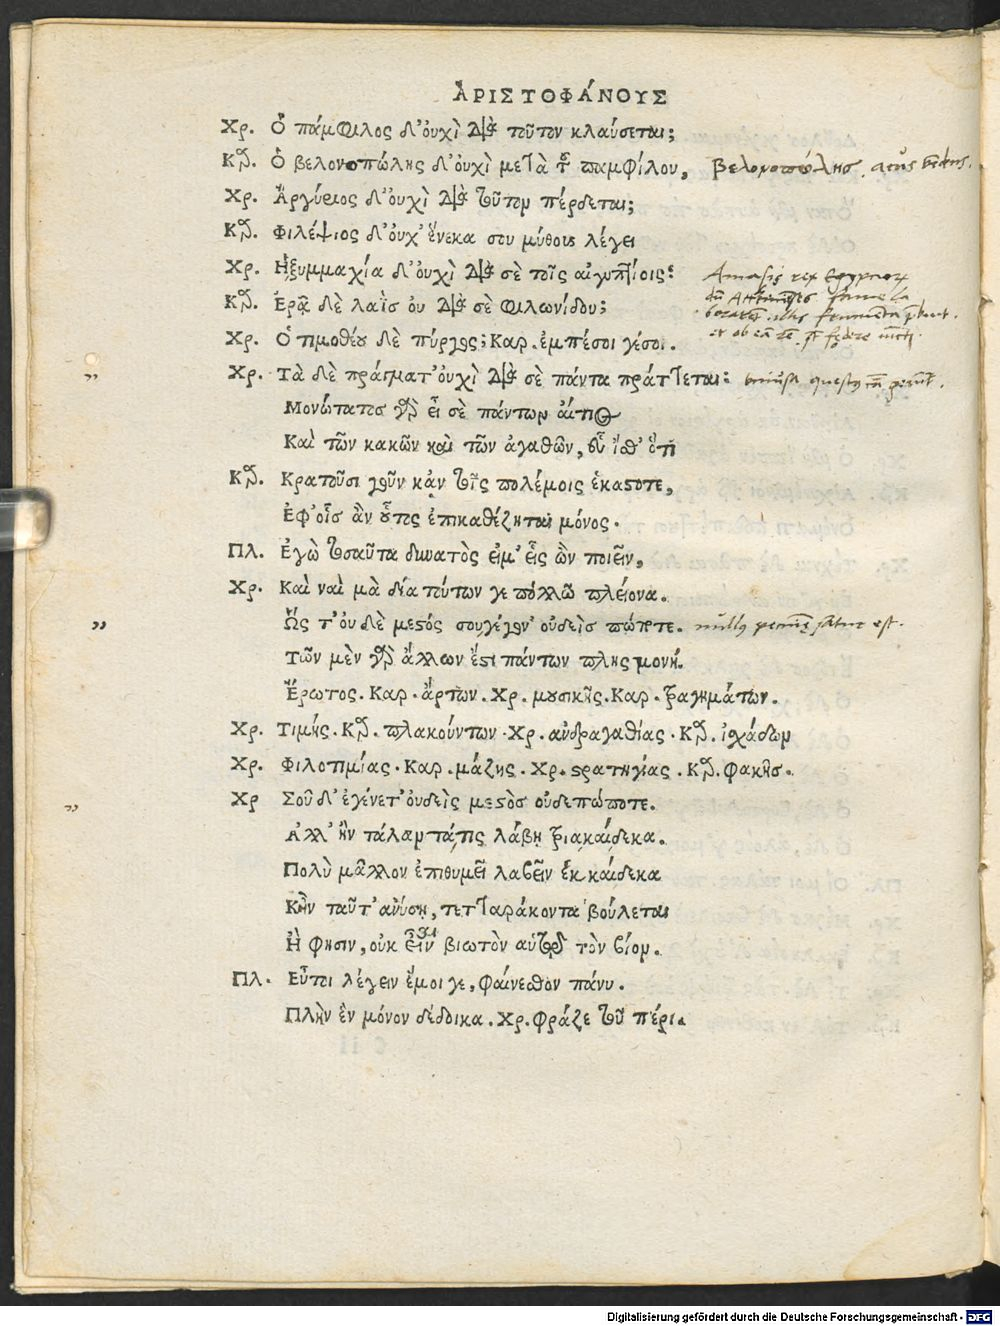 ἈΡΙΣΤΟΦΆΝΟΥΣ
Χρ. Ὁ πάμφιλος δ'ὀυχὶ διὰ τοῦτον κλαύσεται;
Κρ. Ὁ βελονοπώλης δ'ὀυχὶ μετὰ τοῦ παμφίλου, βελονοπώλης.
Χρ. Ἀργύριος δ'ὀυχὶ διὰ τοῦτον πέρδεται;
Κρ. Φιλέψιος δ'ὀυχ' ἕνεκα σου μύθους λέγει
Χρ. Ἡξυμμαχία δ'ὀυχὶ διὰ σὲ τοῖς αἰγυπτίοις; Amasis rex
Κρ. Ἐρᾷ δὲ λαῒς ὀυ διὰ σὲ φιλωνίδου;
Χρ. Ὁ τιμοθέου δὲ πύργος; Καρ. ἐμπέσοι γέσοι.
Χρ. Τὰ δὲ πράγματ'ὀυχὶ διὰ σὲ πάντα πράττεται:
Μονώτατος γὰρ εἶ σὲ πάντων ἄιτιος
Καὶ τῶν κακῶν καὶ τῶν ἀγαθῶν, εὖ ἴσθ' ὅτι
Κρ. Κρατοῦσι γοῦν κἀν τοῖς πολέμοις ἑκάστοτε,
Ἐφ'οἷς ἂν οὗτος ἐπικαθέζηται μόνος.
Πλ. Ἐγὼ τοσαῦτα δυνατὸς εἰμ' εἷς ὢν ποιεῖν,
Χρ. Καὶ ναὶ μὰ δία τούτων γε πολλῶ πλείονα.
Ὥς τ'ὀυ δὲ μεστός σουγέγον' ὀυδεὶς πώποτε. satur est.
Τῶν μὲν γὰρ ἄλλων ἐστι πάντων πλησμονή.
Ἔρωτος. Καρ. ἄρτων. Χρ. μουσικῆς. Καρ. τραγημάτων.
Χρ. Τιμῆς. Κρ. πλακούντων. Χρ. ἀνδραγαθίας. Κρ. ἰσχάδων
Χρ. Φιλοτιμίας. Καρ. μάζης. Χρ. στρατηγίας. Κρ. φακῆς.
Χρ Σοῦ δ'ἐγένετ'ὀυδεὶς μεστὸς ὀυδεπώποτε.
Ἀλλ' ἢν τάλαντάτις λάβῃ τριακαίδεκα.
Πολὺ μᾶλλον ἐπιθυμεῖ λαβεῖν ἑκκαίδεκα
Κἢν ταῦτ'ἀνύσῃ, τετταράκοντα βούλεται
Ἢ φησιν, ὀυκ εἶναι βιωτὸν αὑτῷ τὸν βίον.
Πλ. Εὖτοι λέγειν ἔμοιγε, φαίνεσθον πάνυ.
Πλὴν ἓν μόνον δέδδικα. Χρ. φράζε τοῦ πέρι.
Digitalisierung gefördert durch die Deutsche Forschungsgemeinschaft - DFG